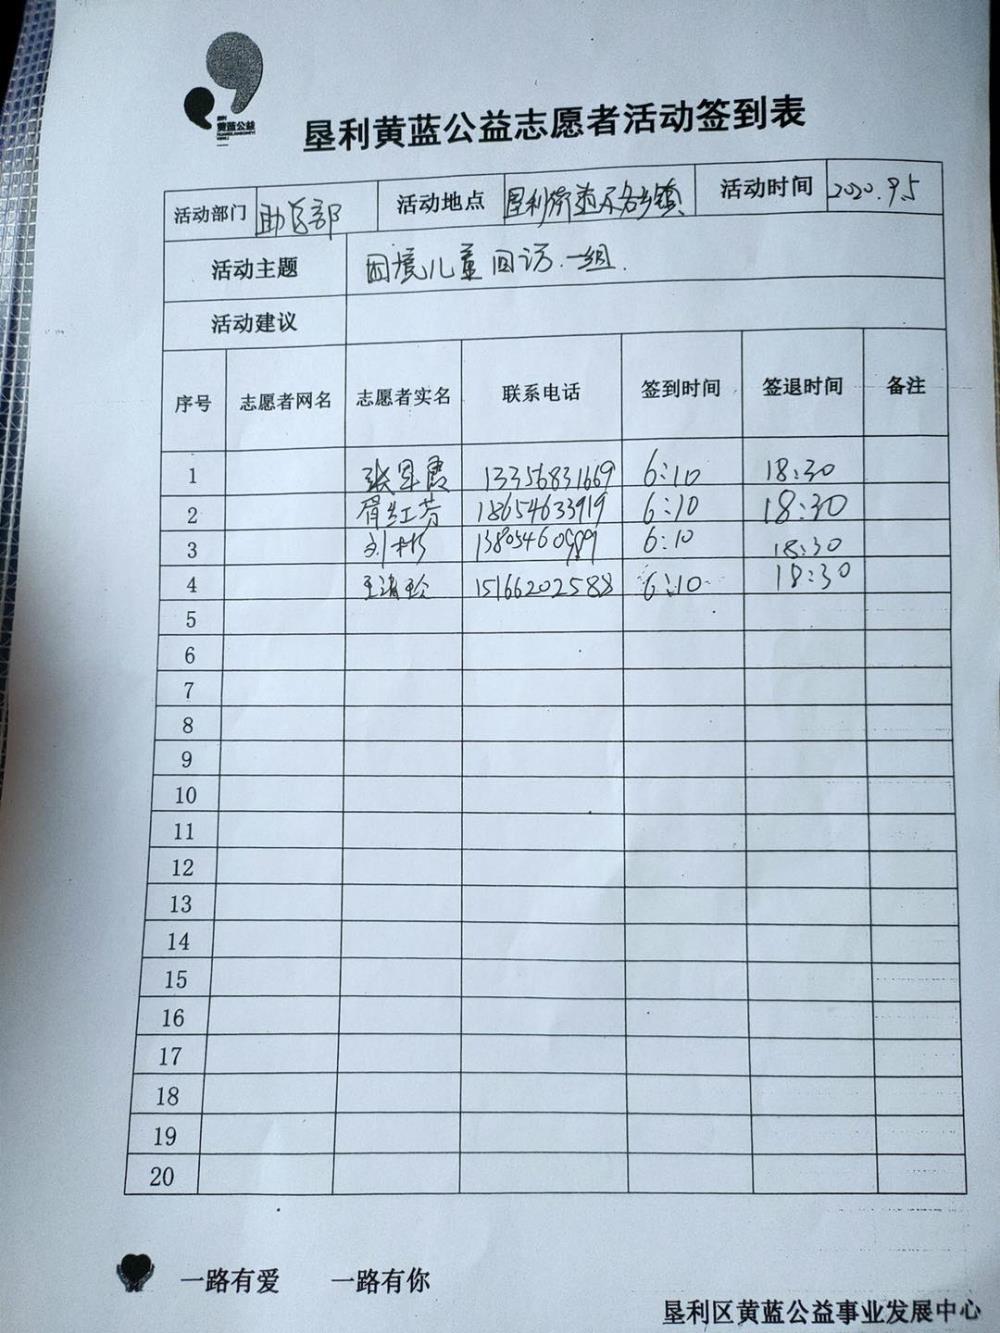 黄蓝公益
垦利黄蓝公益志愿者活动签到表
活动部门 助学部 活动地点 垦利街道及各乡镇 活动时间 2020.9.5
活动主题 困境儿童回访.一组.
活动建议
序号 志愿者网名 志愿者实名 联系电话 签到时间 签退时间 备注
1 张军霞 13356831669 6:10 18:30
2 胥红芳 18654633919 6:10 18:30
3 刘彬 13805460989 6:10 18:30
4 王清玲 15166202588 6:10 18:30
5
6
7
8
9
10
11
12
13
14
15
16
17
18
19
20
一路有爱 一路有你
垦利区黄蓝公益事业发展中心